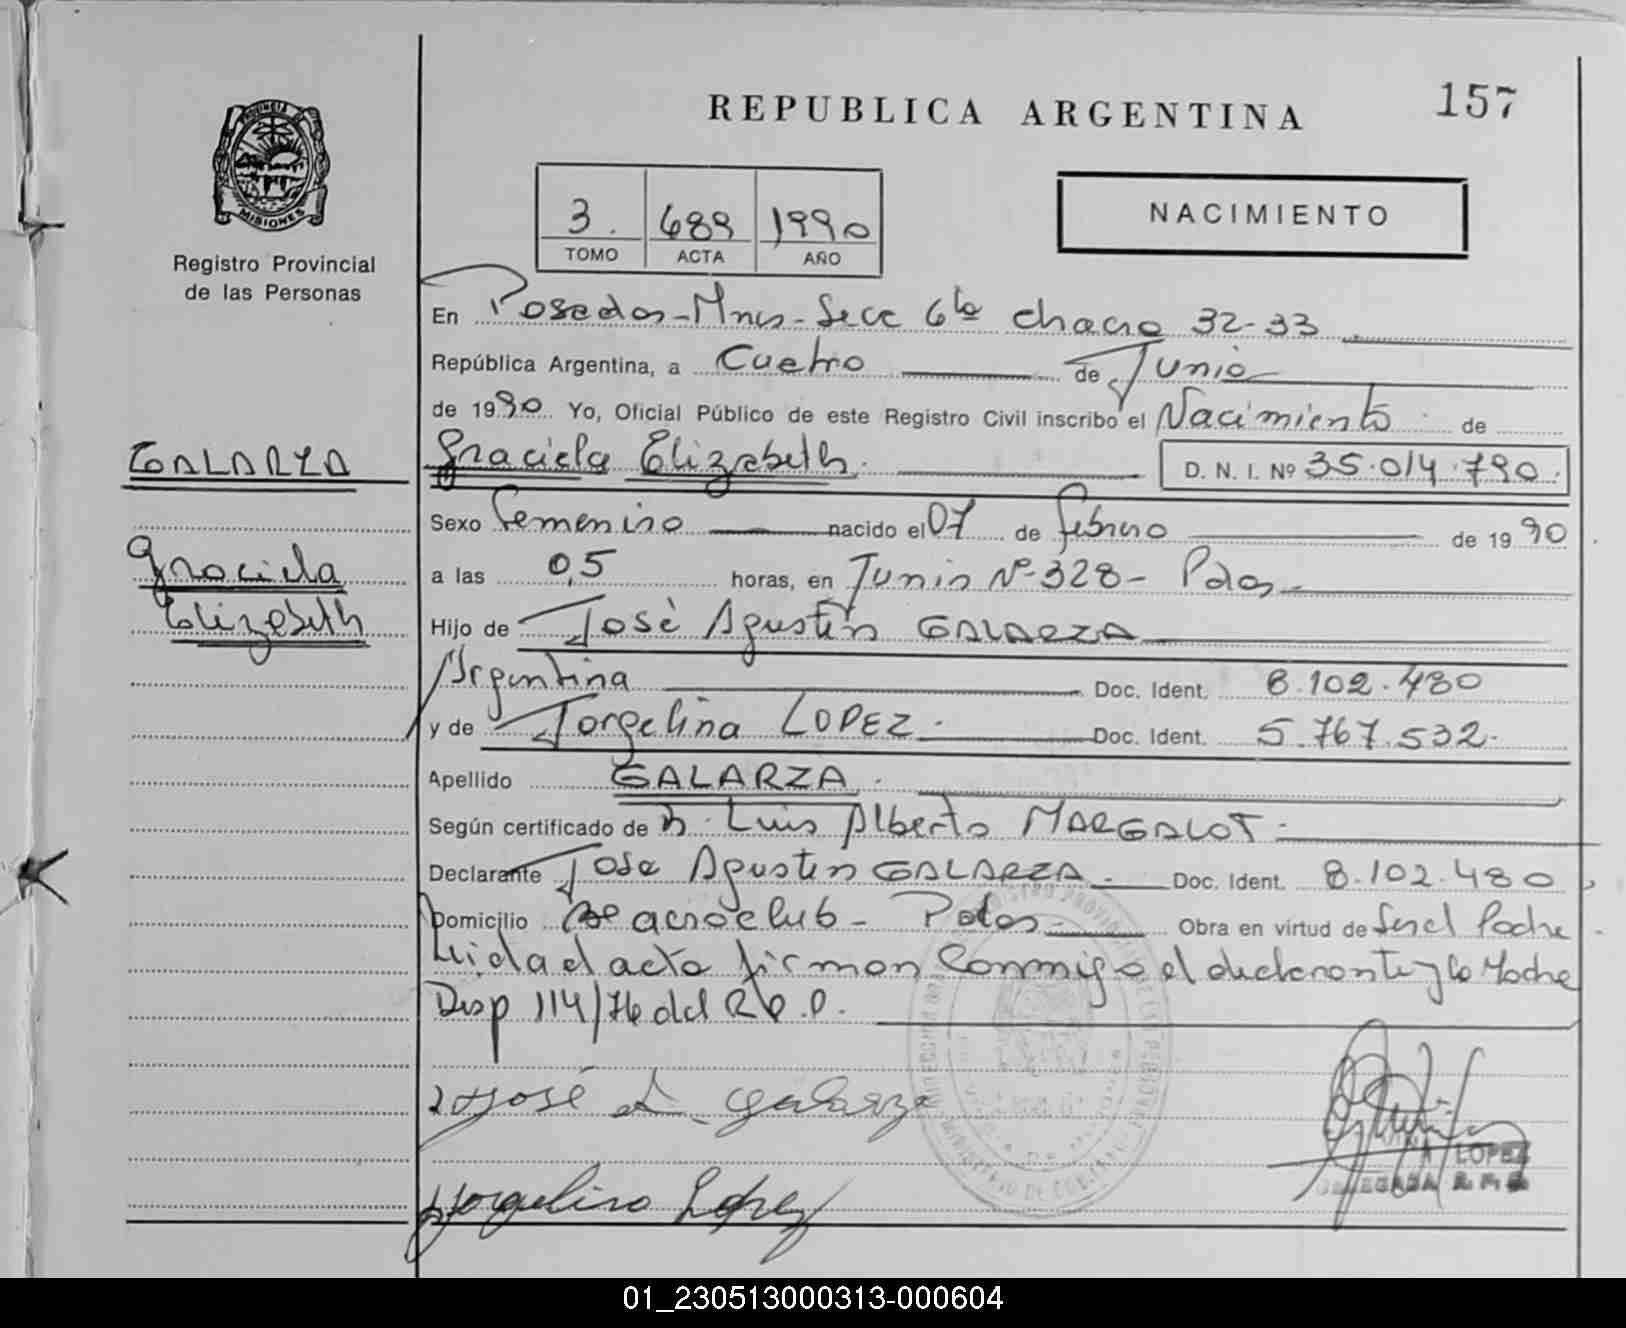 157
REPUBLICA ARGENTINA
PROVINCIA DE MISIONES
Registro Provincial
de las Personas
3. 689 1990
TOMO ACTA AÑO
NACIMIENTO
En Posadas-Mnes-Secc 6ta chacra 32-33
República Argentina, a Cuatro de Junio
de 1990 Yo, Oficial Público de este Registro Civil inscribo el Nacimiento de
GALARZA
Graciela Elizabeth. D. N. I. Nº 35.014.790.
Sexo Femenino nacido el 07 de febrero de 1990
Graciela
a las 0,5 horas, en Junin Nº-328- Pdas
Elizabeth
Hijo de José Agustin GALARZA
Argentina Doc. Ident. 8.102.480
y de Jorgelina LOPEZ. Doc. Ident. 5.767.532.
Apellido GALARZA.
Según certificado de Luis Alberto MARGALOT-
Declarante Jose Agustin GALARZA. Doc. Ident. 8.102.480
Domicilio Bº aeroclub- Pdas- Obra en virtud de Ser el Padre
Leida el acta firman Conmigo el declarante y la Madre
Disp 114/76 del R.P.P.
José A. Galarza
LOPEZ
DELEGADA R.P.P.
Jorgelina Lopez
01_230513000313-000604